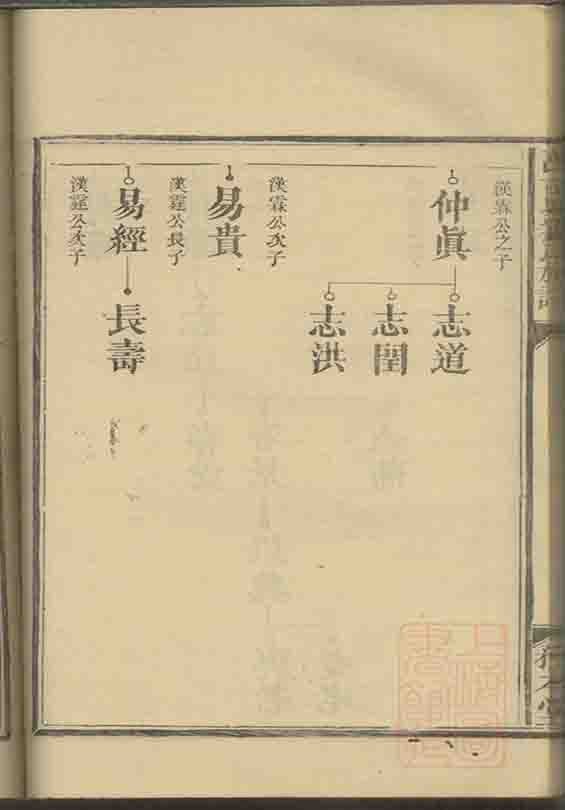 漢霖公之子
仲眞
志道
志閨
志洪
漢霖公次子
易貴
漢霆公長子
易經
長壽
漢霆公次子